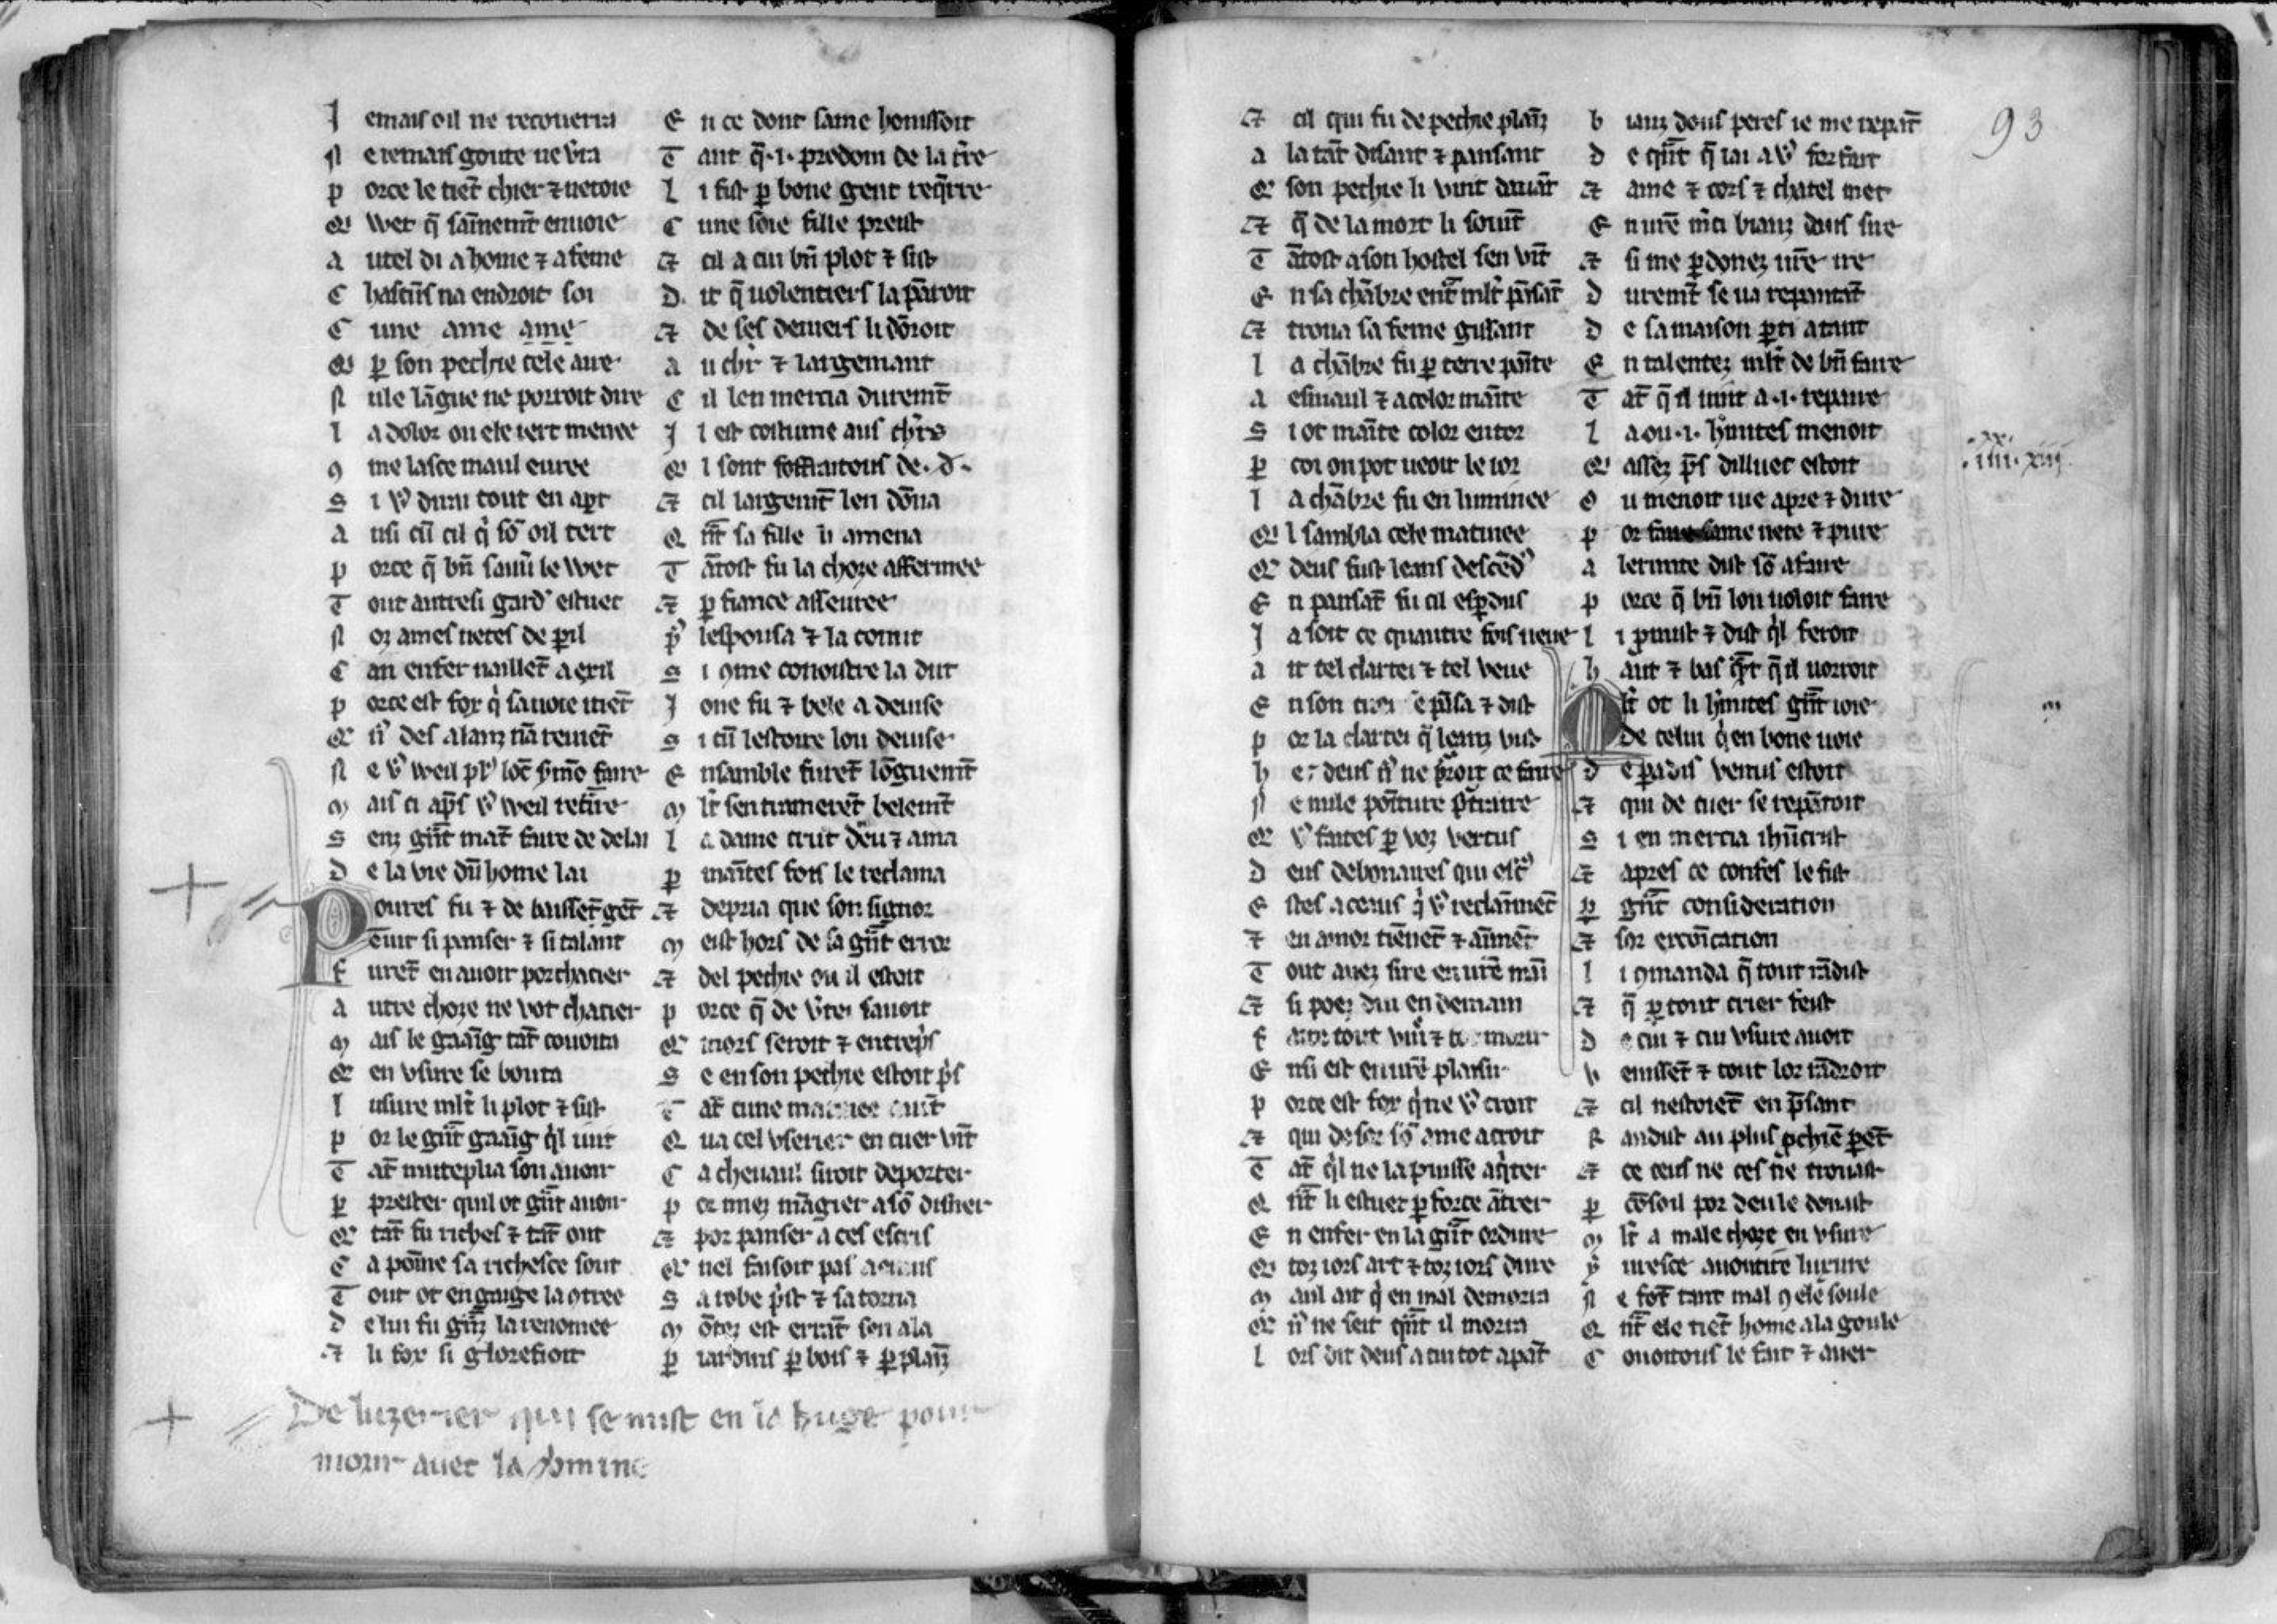 J emais oil ne recouerra
N e iemais goute ne v̄ra
p orce le tiet̄ chier ⁊ netoie
Q' wet q̄ sain̄nemt̄ enuoie
a utel di a home ⁊ a feme
C hascūs na endroit soi
C une ame ame
Q' ꝑ son pechie cele aue
N ule lāgue ne porroit dire
l a dolor ou ele iert menee
ꝯ me lasce maul euree
S i vꝰ dirai tout en apt
a usi cū cil q̇ sō oil tert
p orce q̄ bn̄ sauū le wet
T out autresi gardꝰ estuet
N oz ames netes de ꝑil
C an enfer naillet̄ a exil
p orce est fox q̇ sa uoie tiet̄
Q' n̄ des alanz nā reuiet̄
N e vꝰ weil plꝰ loc̄ ẜmō faire
M ais ci ap̄s vꝰ weil ret̄ire
S enz gn̄t mat̄ faire de delai
D e la vie dū home lai
P oures fu ⁊ de bausset̄ get̄
C euit si panser ⁊ si talant
F uret̄ en auoir porchacier
a utre choze ne vot chacier
M ais le gaāig tāt couoita
Q' en vsure se bouta
l usure mlt̄ li plot ⁊ sist
p or le gn̄t gaāig q̇l uint
T āt muteplia son auoir
ꝑ prester quil ot gn̄t auoir
Q' tāt fu riches ⁊ tāt out
C a poine sa richesce sout
T out ot en gaige la ꝯtree
D e lui fu gn̄z la renomee
⁊ li fox si glorefioit
E n ce dont same honissoit
T ant q̄ .i. predom de la tr̄e
l i fist ꝑ bone gent req̄rre
C une soie fille preist
⁊ cil a cui bn̄ plot ⁊ sist
D it q̄ uolentiers la pār̄oit
⁊ de ses deniers li dōroit
a u chr̄ ⁊ largemant
C il len mercia duremt̄
J l est costume aus chr̄s
Q' i sont soffraitous de .d.
⁊ cil largemt̄ len dōna
Q n̄t sa fille li amena
T ātost fu la choze affermee
⁊ ꝑ fiance asseuree
pꝰ lespousa ⁊ la conut
S i ꝯme conoistre la dut
J one fu ⁊ bele a deuise
S i cū lestoire lou deuise
E nsamble furet̄ lōguemt̄
M lt̄ sentrameret̄ belemt̄
l a dame crut deu ⁊ ama
p maītes fois le reclama
⁊ depria que son signor
M eist hors de sa gn̄t error
⁊ del pechie ou il estoit
p orce q̄ de v̄tei sauoit
Q' mors seroit ⁊ entrep̄s
S e en son pechie estoit p̄s
T āt cune matinee auit̄
Q ua cel vserier en cuer vīt
C a cheuaul siroit deporter
p or miez māgier a sō disner
⁊ por panser a ces escris
Q' nel faisoit pas a enuis
S a robe p̄st ⁊ sa torna
M ōtez est errāt sen ala
p iardins ꝑ bois ⁊ ꝑ plaīz
De luzerier qui se mist en la huge pour
morir auec la vermine
93
⁊ cil qui fu de pechie plaīz
a la tāt disant ⁊ pansant
Q' son pechie li vint dauāt
⁊ q̄ de la mort li souīt
T ātost a son hostel sen vīt
E n sa chābre ent̄ mlt̄ pāsāt
⁊ troua sa feme gisant
l a chābre fu ꝑ terre pāite
a esmaul ⁊ a color maīte
S i ot maīte color entor
p coi on pot ueoir le ior
l a chābre fu en luminee
Q' l sambla cele matinee
Q' deus fust leans descēdꝰ
E n pansāt fu cil esꝑdus
J a soit ce quautre fois ueue
a it tel clartei ⁊ tel veue
E n son cuer se pāsa ⁊ dist
p or la clartei q̄ leanz vist
h e deus n̄ ne porroit ce faire
N e nule pointure portraire
Q' vꝰ faites ꝑ voz vertus
D eus debonaires qui est̄
E stes a ceaus q̇ vꝰ reclaīmet̄
⁊ en amor tiēnet̄ ⁊ aimēt
T out auez sire en ur̄e maī
⁊ si poez dui en demain
F aire tout viure ⁊ tout morir
E nsi est en ur̄e plaisir
p orce est fox q̇ ne vꝰ croit
⁊ qui desor sō ame acroit
T āt q̇l ne la puisse aq̇ter
Q n̄t li estuet ꝑ force ātrer
E n enfer en la gn̄t ordure
Q' toz iors art ⁊ toz iors dure
M aul ait q̇ en mal demorra
Q' n̄ ne seit qn̄t il morra
l ors dit deus a cui tot apāt
b iauz dous peres ie me repāt
D e qn̄t q̄ iai a vꝰ forfait
⁊ ame ⁊ cors ⁊ chatel met
E n ur̄e m̄ci biauz dous sire
⁊ si me ꝑdonez ur̄e ire
D uremt̄ se ua repantāt
D e sa maison ꝑti atant
E n talentez mlt̄ de bn̄ faire
T āt q̄ il uint a .i. repaire
l a ou .i. h̄mites menoit
Q' assez p̄s dilluec estoit
O u menoit uie apre ⁊ dure
p or faire lame nete ⁊ pure
a lermite dist sō afaire
p orce q̄ bn̄ lou uoloit faire
l i pmist ⁊ dist q̇l feroit
h aut ⁊ bas qn̄t q̄ il uorroit
M lt̄ ot li h̄mites gn̄t ioie
De celui q̇ en bone uoie
D e padis venus estoit
⁊ qui de cuer se repētoit
S i en mercia ihūcrist
⁊ apres ce confes le fist
ꝑ gn̄t consideration
⁊ sor ercōication
l i ꝯmanda q̄ tout rādist
⁊ q̄ ꝑ tout crier feist
D e cui ⁊ cui vsure auoit
V enisset̄ ⁊ tout lor rādroit
⁊ cil nestoiet̄ en p̄sant
R andist au plus ꝓchiē ꝑet̄
⁊ ce ceus ne ces ne trouast
p cōsoil por deu le donast
M lt̄ a male choze en vsure
pꝰ iuresce auoutire luxure
N e fōt tant mal ꝯ ele soule
Q n̄t ele tiet̄ home a la goule
C ouoitous le fait ⁊ auer